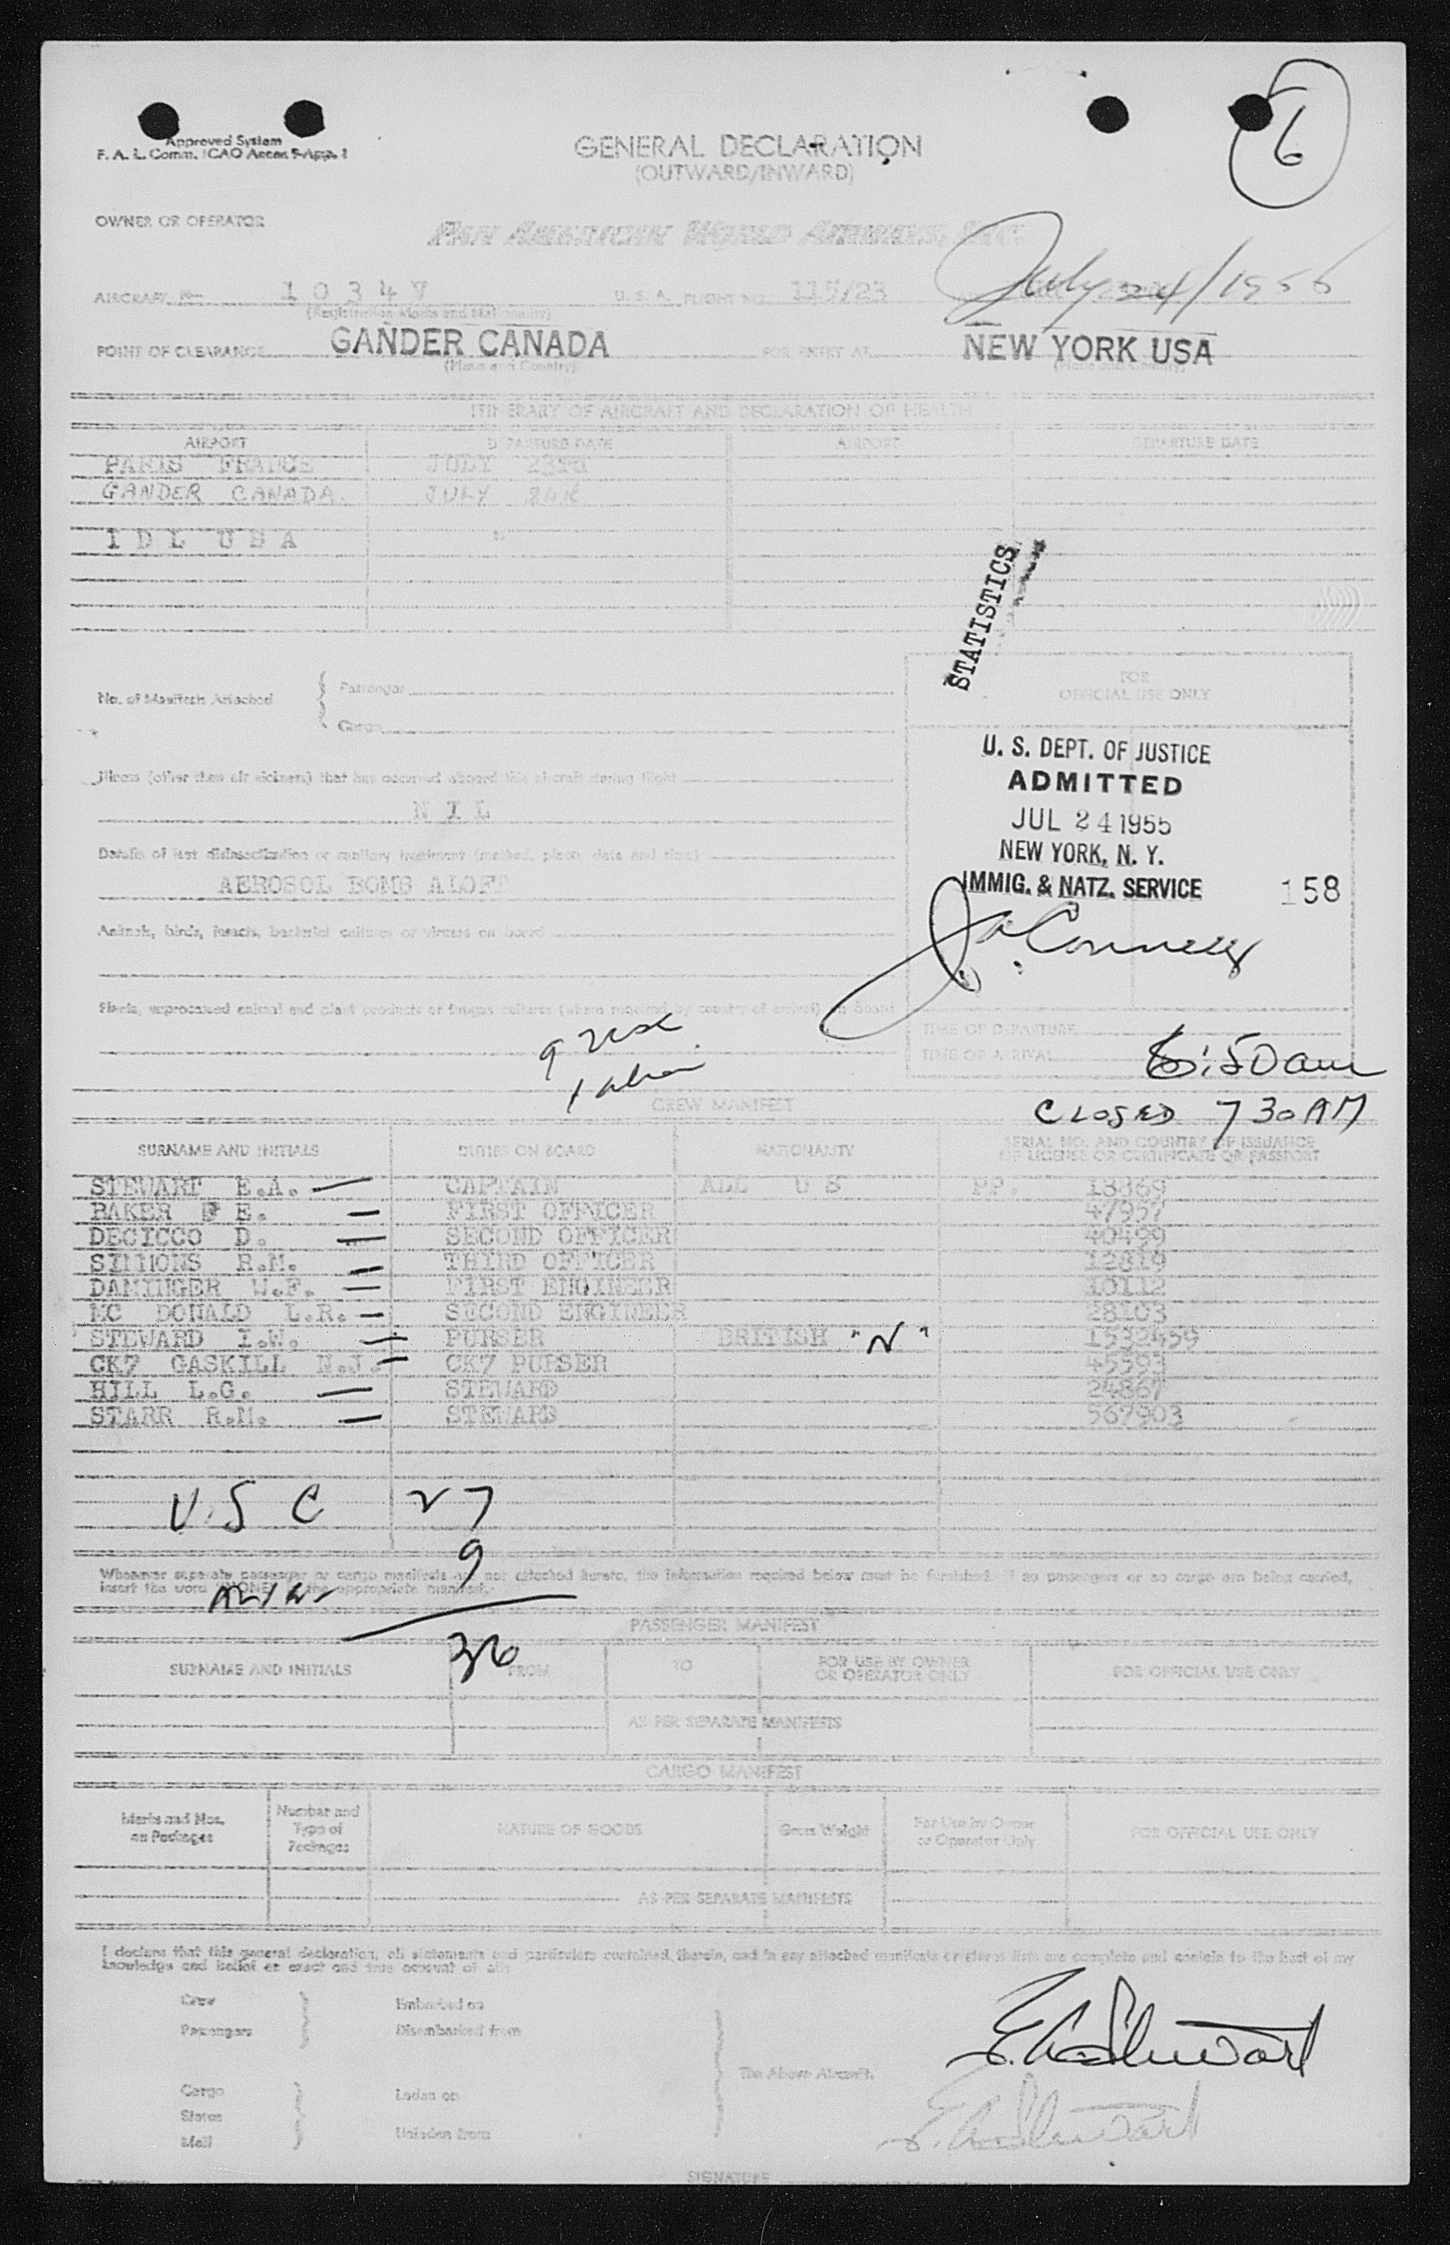 6
Approved System
F. A. L. Comm. ICAO Annex 9-App. 1
GENERAL DECLARATION
(OUTWARD/INWARD)
OWNER OR OPERATOR
PAN AMERICAN WORLD AIRWAYS, INC.
AIRCRAFT N- 1034V U.S.A. FLIGHT NO. 115/23 July 24/1955
(Registration Marks and Nationality)
POINT OF CLEARANCE GANDER CANADA FOR ENTRY AT NEW YORK USA
(Place and Country) (Place and Country)
ITINERARY OF AIRCRAFT AND DECLARATION OF HEALTH
AIRPORT DEPARTURE DATE AIRPORT DEPARTURE DATE
PARIS FRANCE JULY 23RD
GANDER CANADA. JULY
I D L U S A "
STATISTICS
No. of Manifests Attached { Passenger
Cargo
FOR
OFFICIAL USE ONLY
Illness (other than air sickness) that has occurred aboard this aircraft during flight
N I L
Details of last disinsectization or sanitary treatment (method, place, date and time)
AEROSOL BOMB ALOFT
Animals, birds, insects, bacterial cultures or viruses on board
Plants, unprocessed animal and plant products or fungus cultures (where required by country of arrival) on board
U. S. DEPT. OF JUSTICE
ADMITTED
JUL 24 1955
NEW YORK, N. Y.
IMMIG. & NATZ. SERVICE 158
TIME OF DEPARTURE
TIME OF ARRIVAL 6:50 am
9 usc
1 alien
CREW MANIFEST
CLOSED 730 AM
SURNAME AND INITIALS DUTIES ON BOARD NATIONALITY SERIAL NO. AND COUNTRY OF ISSUANCE
OF LICENSE OR CERTIFICATE OR PASSPORT
STEWART E.A. CAPTAIN ALL U S PP. 13869
BAKER F E. FIRST OFFICER 47957
DECICCO D. SECOND OFFICER 40499
SIMMONS R.M. THIRD OFFICER 12819
DANINGER W.F. FIRST ENGINEER 10112
MC DONALD L.R. SECOND ENGINEER 28103
STEWARD I.W. PURSER BRITISH "N" 1532459
CK7 GASKILL N.J. CK7 PURSER 45393
HILL L.G. STEWARD 24867
STARR R.M. STEWARD 567903
U.S C 27
9
Whenever separate passenger or cargo manifests are not attached hereto, the information required below must be furnished. If no passengers or no cargo are being carried,
insert the word (NONE) in the appropriate manifest.
36
PASSENGER MANIFEST
SURNAME AND INITIALS FROM TO FOR USE BY OWNER
OR OPERATOR ONLY FOR OFFICIAL USE ONLY
AS PER SEPARATE MANIFESTS
CARGO MANIFEST
Marks and Nos.
on Packages Number and
Type of
Packages NATURE OF GOODS Gross Weight For Use by Owner
or Operator Only FOR OFFICIAL USE ONLY
AS PER SEPARATE MANIFESTS
I declare that this general declaration, all statements and particulars contained therein, and in any attached manifests or stores lists are complete and contain to the best of my
knowledge and belief an exact and true account of all:
Crew
Passengers } Embarked on
Disembarked from
The Above Aircraft.
Cargo
Stores
Mail } Laden on
Unladen from
E. A. Stewart
E. A. Stewart
SIGNATURE